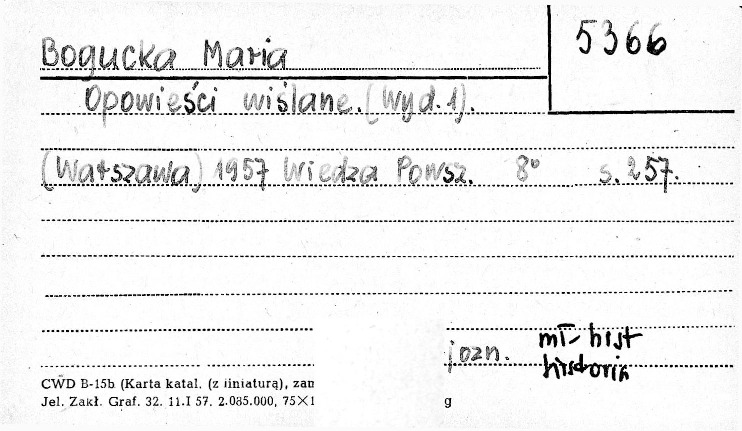 5366
Bogucka Maria
Opowieści wiślane. (Wyd. 1).
(Warszawa) 1957 Wiedza Powsz. 8° s. 257.
mł-hist
jozn. historia
CWD B-15b (Karta katal. (z liniaturą), zam
Jel. Zakł. Graf. 32. 11.I 57. 2.085.000, 75×1 g